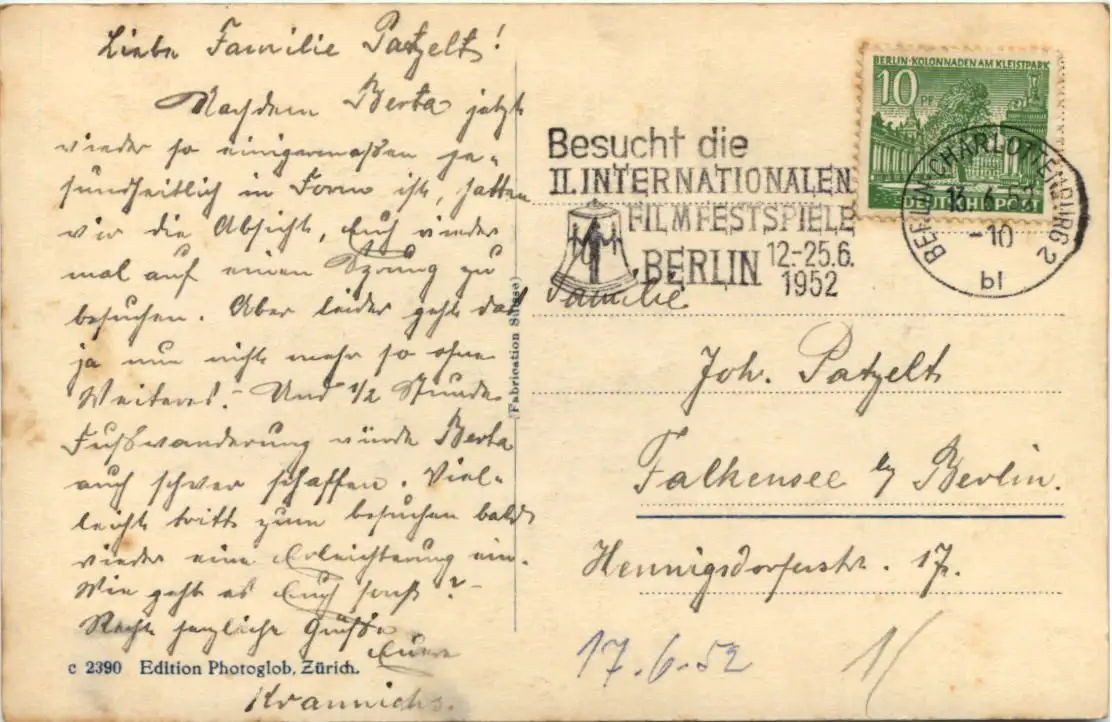 Liebe Familie Patzelt!
Nachdem Berta jetzt
wieder so einigermaßen ge-
sundheitlich in Form ist, hatten
wir die Absicht, Euch wieder
mal auf einen Sprung zu
besuchen. Aber leider geht das
ja nun nicht mehr so ohne
Weiteres! - Und 1/2 Stunde
Fußwanderung würde Berta
auch schwer schaffen. Viel-
leicht tritt zum besuchen bald
wieder eine Erleichterung ein.
Wie geht es Euch sonst? -
Recht herzliche Grüße
Eure
Krannichs.
c 2390 Edition Photoglob, Zürich.
(Fabrication Suisse)
BERLIN·KOLONNADEN AM KLEISTPARK
10 PF
DEUTSCHE POST
Besucht die
II. INTERNATIONALEN
FILMFESTSPIELE
BERLIN 12.-25.6.
1952
BERLIN-CHARLOTTENBURG 2
13.6.52
-10
bl
Familie
Joh. Patzelt
Falkensee b/ Berlin.
Hennigsdorferstr. 17.
17.6.52